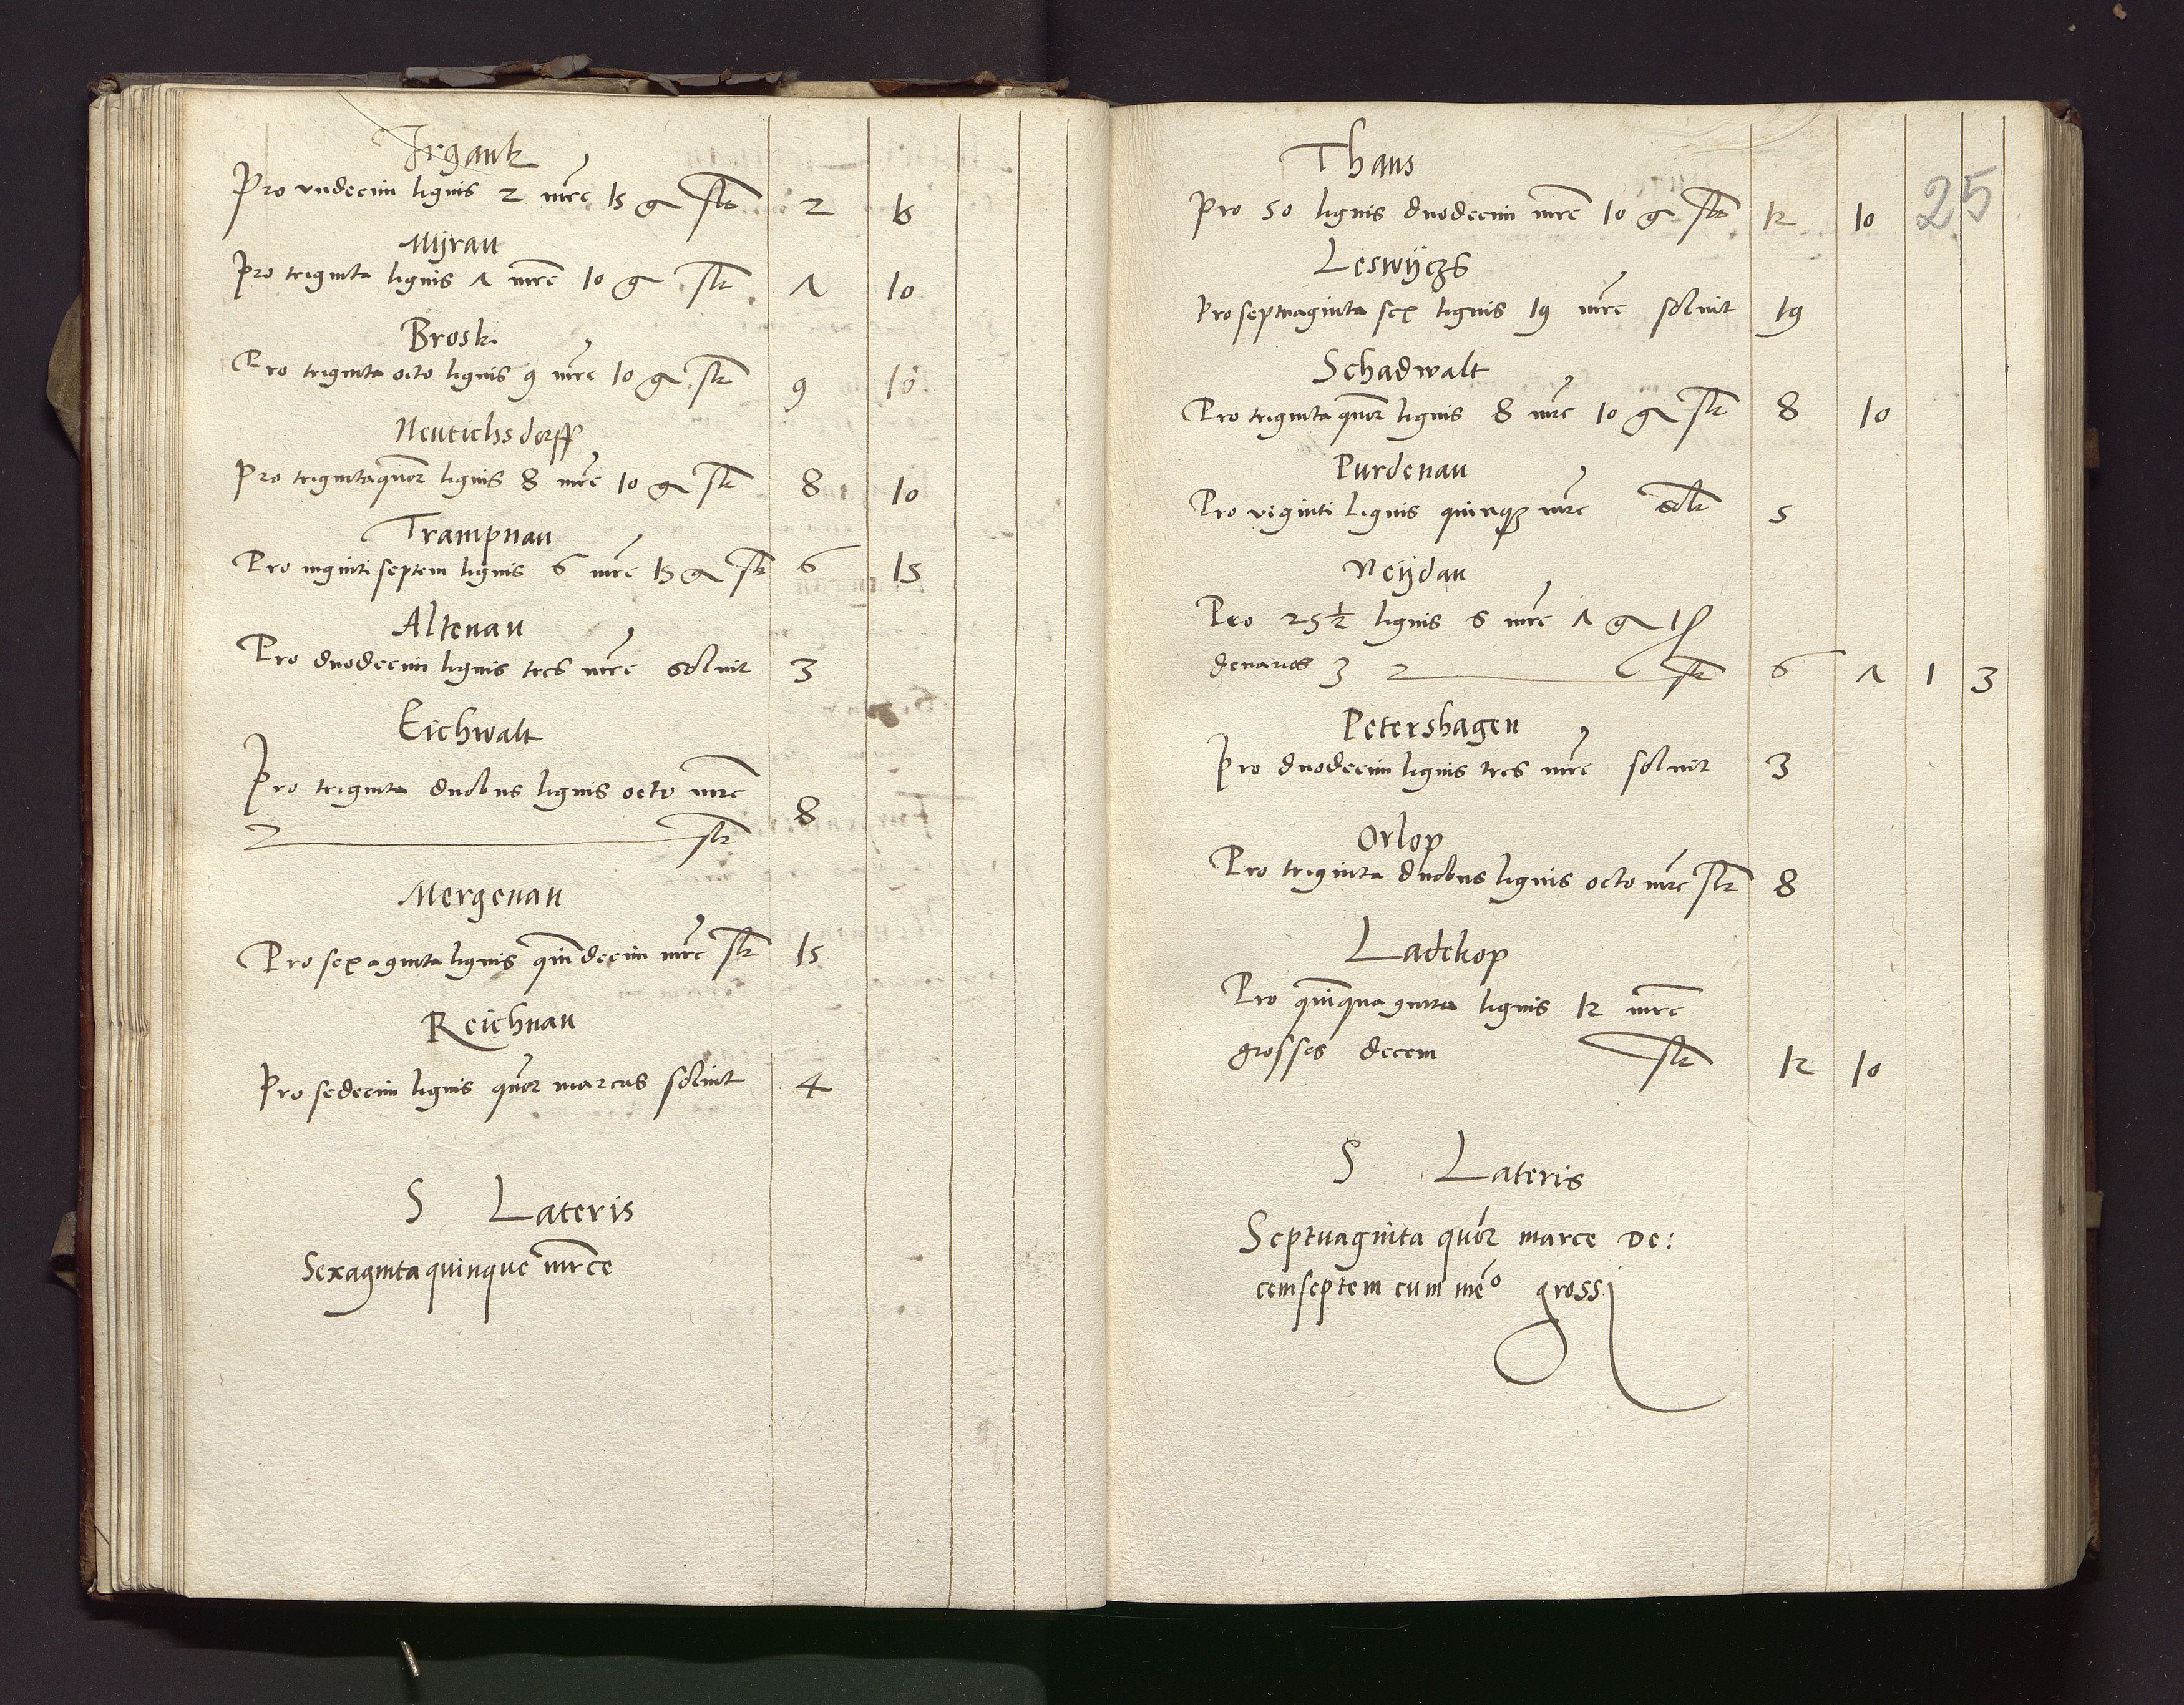 Irgank
Pro undecim lignis 2 mrc 15 g sltr 2 15
Mijrau
Pro triginta lignis 7 mrc 10 g slt 7 10
Broski
Pro triginta octo lignis 9 mrc 10 g slt 9 10
Neutichsdorff
Pro trigintaquor lignis 8 mrc 10 g slt 8 10
Trampnau
Pro viginti septem lignis 6 mrc 15 g slt 6 15
Altenau
Pro duodecim lignis tres mrc soluit 3
Eichwalt
Pro triginta duobus lignis octo mrc
slt 8
Mergenau
Pro sexaginta lignis quindecim mrc slt 15
Reichnau
Pro sedecim lignis quor marcas soluit 4
S Lateris
Sexaginta quinque mrce
25
Thans
Pro 50 lignis duodecim mrc 10 g slt 12 10
Leswijczs
Pro septuaginta sex lignis 19 mrc soluit 19
Schadwalt
Pro triginta quor lignis 8 mrc 10 g slt 8 10
Purdenau
Pro viginti lignis quinque mrc solt 5
Neijdau
Pro 25½ lignis 6 mrc 7 g 1 ß
denarios 3 slt 6 7 1 3
Petershagen
Pro duodecim lignis tres mrc soluit 3
Orlop
Pro triginta duobus lignis octo mrc slt 8
Ladekop
Pro quinquaginta lignis 12 mrc
grosses decem slt 12 10
S Lateris
Septuaginta quor marce De:
cemseptem cum meo grossj